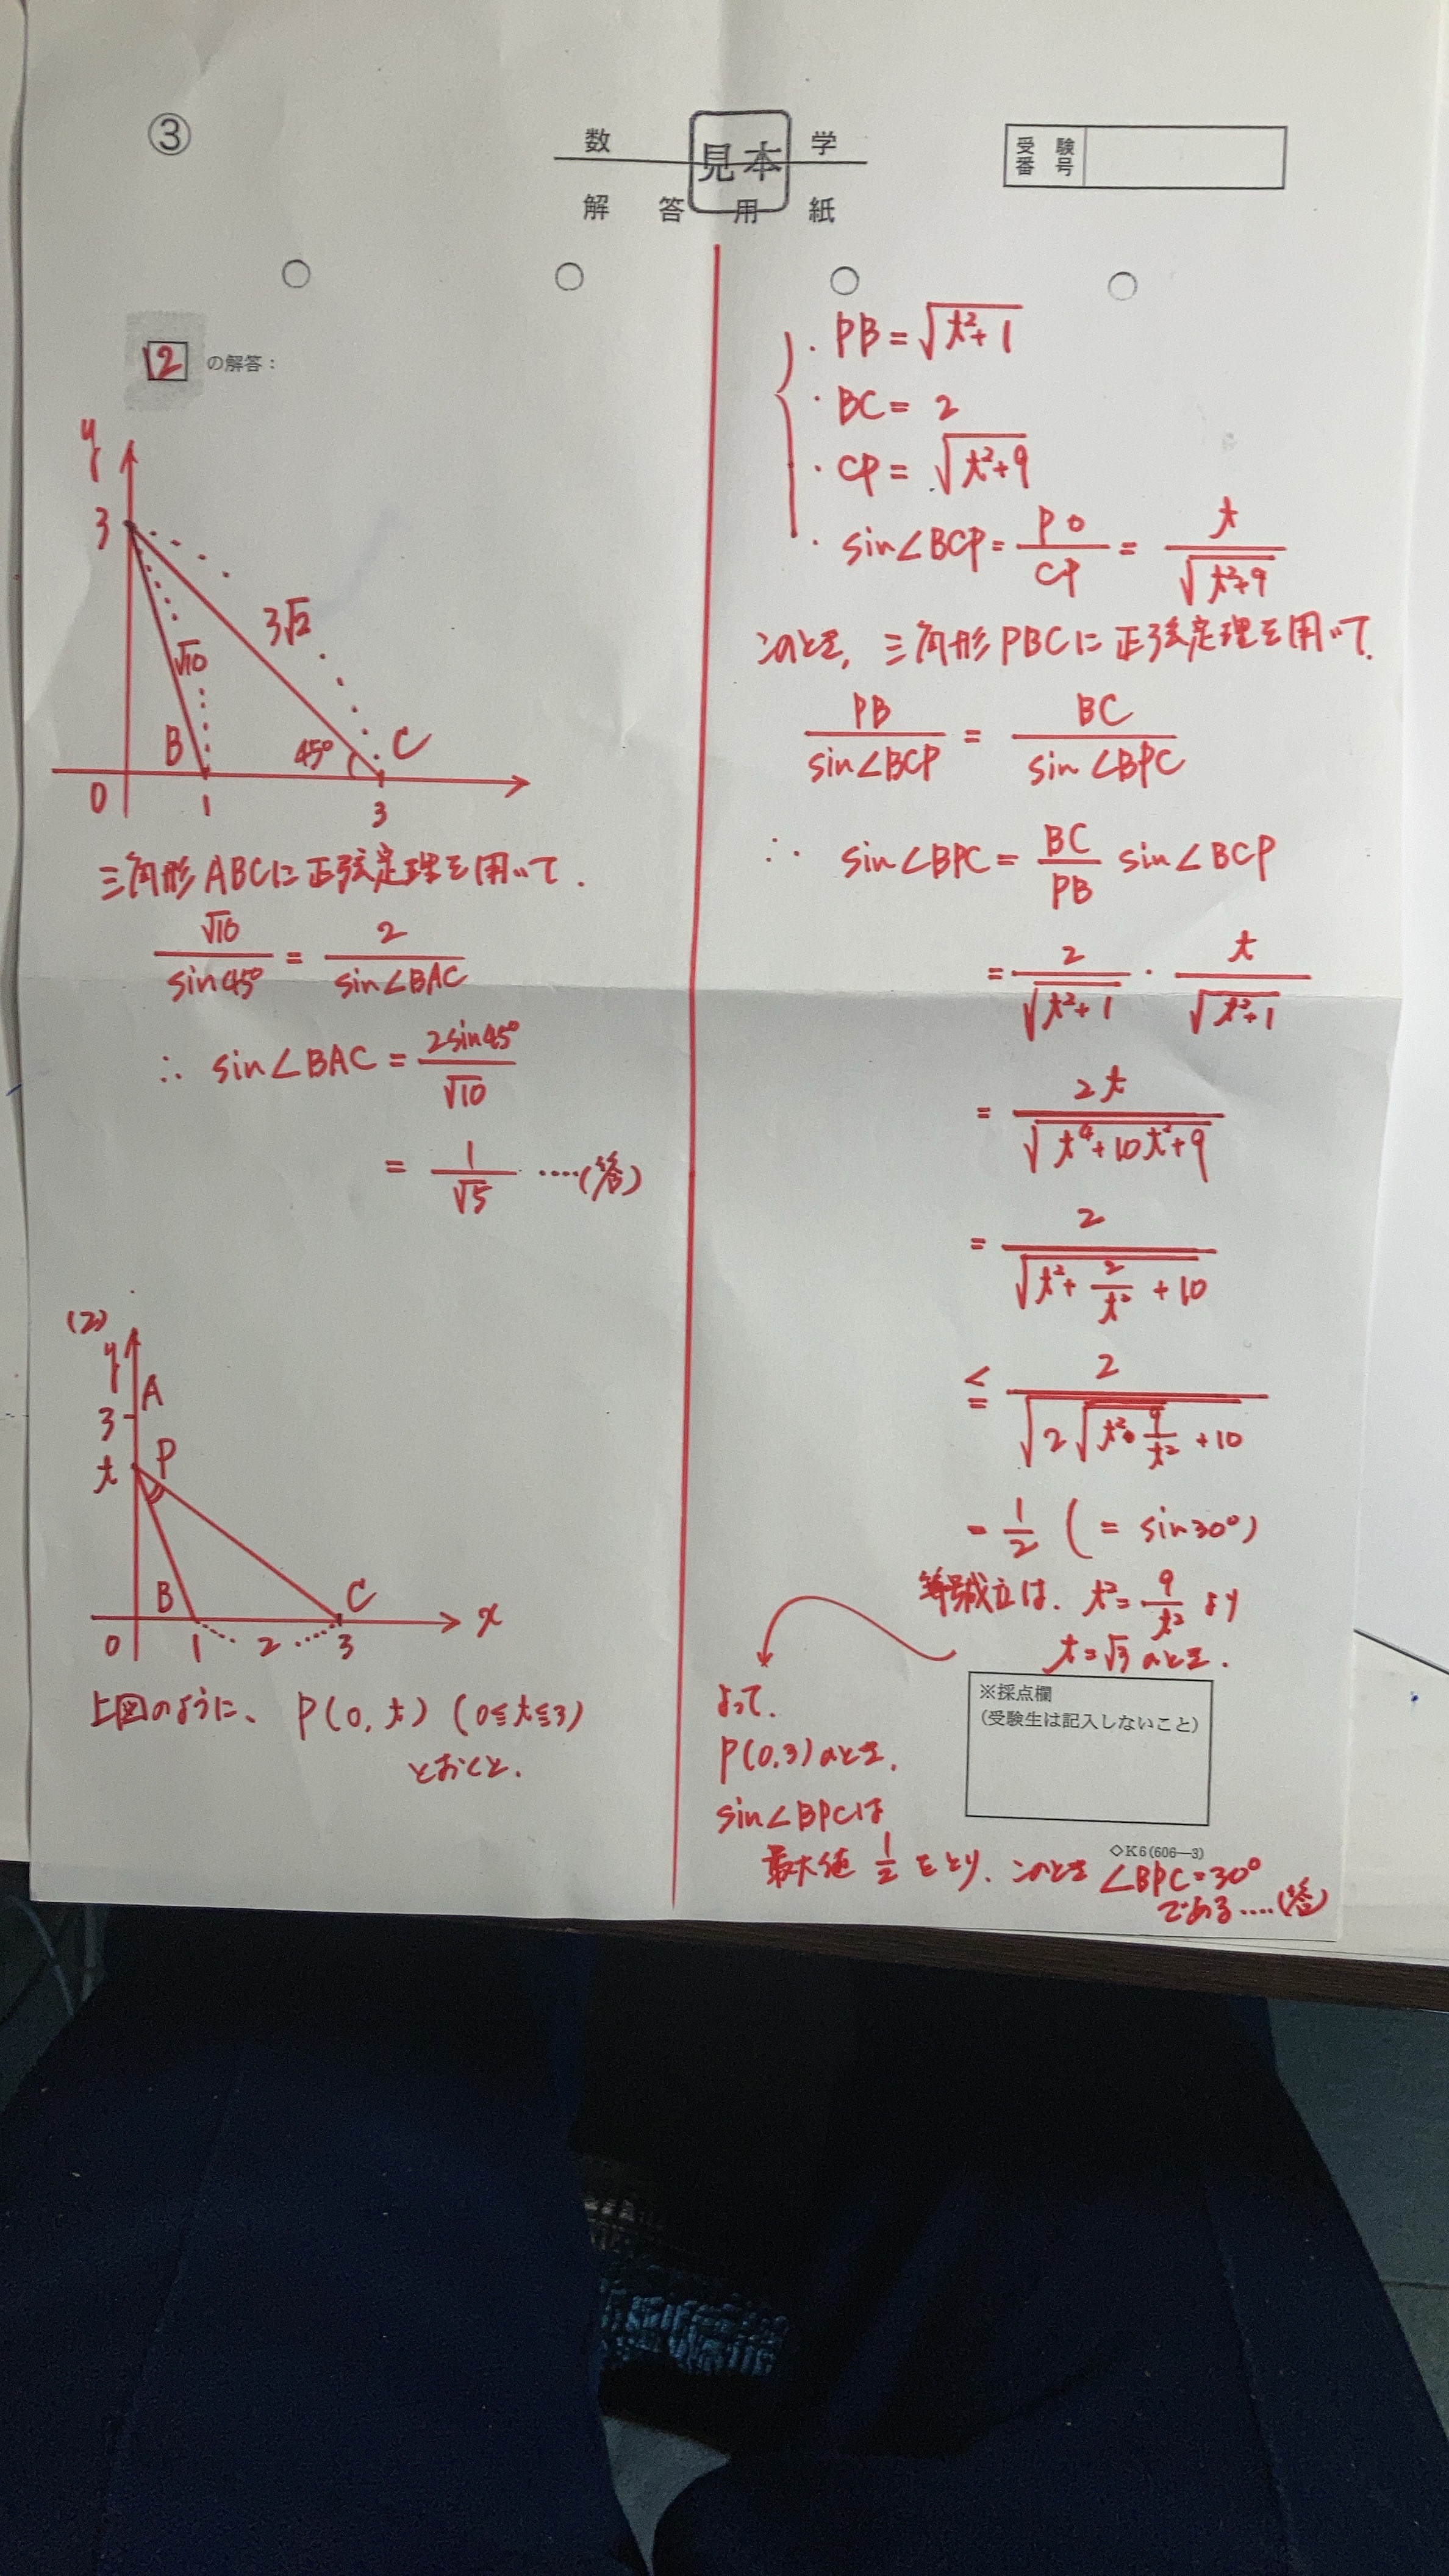 ③
数学
見本
解答用紙
受験番号
2 の解答:
y
3
3√2
√10
B
45°
C
0
1
3
三角形ABCに正弦定理を用いて.
√10/sin45° = 2/sin∠BAC
∴ sin∠BAC = 2sin45°/√10
= 1/√5 ....(答)
(2)
y
A
3
t
P
B
C
x
0
1
2
3
上図のように、P(0, t) (0≦t≦3)
とおくと.
・PB = √(t²+1)
・BC = 2
・CP = √(t²+9)
・sin∠BCP = PO/CP = t/√(t²+9)
このとき, 三角形PBCに正弦定理を用いて.
PB/sin∠BCP = BC/sin∠BPC
∴ sin∠BPC = BC/PB sin∠BCP
= 2/√(t²+1) ・ t/√(t²+1)
= 2t/√(t⁴+10t²+9)
= 2/√(t²+2/t²+10)
≦ 2/√(2√(t²・9/t²)+10)
= 1/2 (= sin30°)
等号成立は. t² = 9/t² より
t=√3のとき.
よって.
P(0,3)のとき.
sin∠BPCは
最大値 1/2 をとり. このとき ∠BPC=30°
である....(答)
※採点欄
(受験生は記入しないこと)
◇K6(606—3)